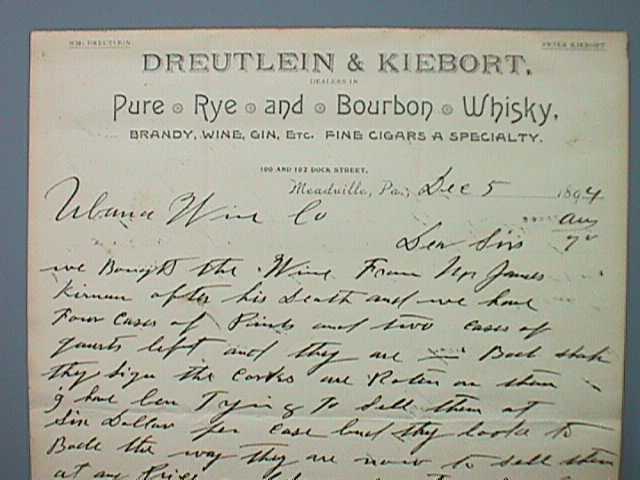 WM. DREUTLEIN PETER KIEBORT
DREUTLEIN & KIEBORT,
DEALERS IN
Pure Rye and Bourbon Whisky,
BRANDY, WINE, GIN, ETC. FINE CIGARS A SPECIALTY.
100 AND 102 DOCK STREET,
Meadville, Pa., Dec 5 1894
Urbana Wine Co
Dear Sirs
we Bought the Wine From Mr James
Kirnan after his Death and we have
Four Cases of Pints and two cases of
quarts left and they are Bad
the Corks are Roten on them
I have ben Trying To Sell them at
Six Dollar per case but they looke to
Bade the way they are now to sell them
at any Price